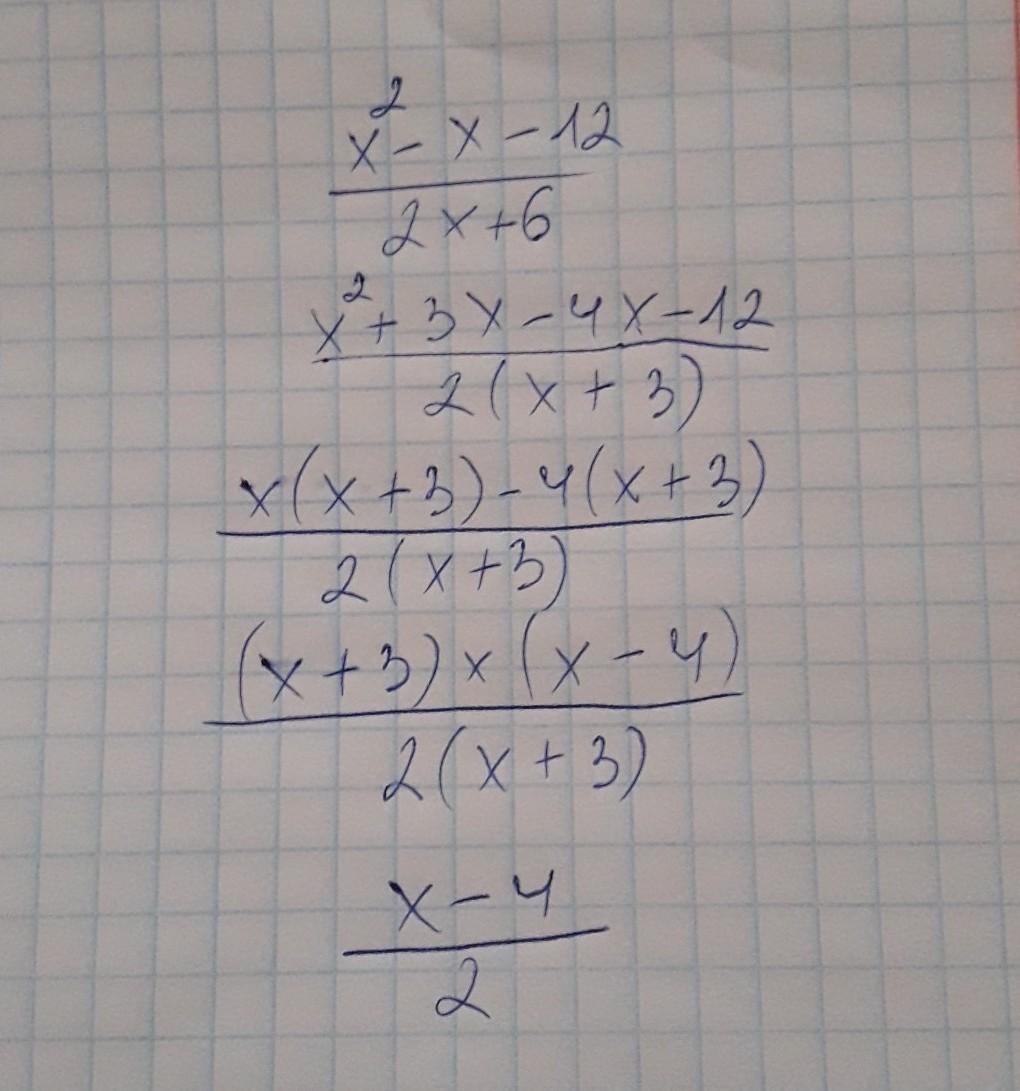 x² - x - 12
2x + 6
x² + 3x - 4x - 12
2(x + 3)
x(x + 3) - 4(x + 3)
2(x + 3)
(x + 3) × (x - 4)
2(x + 3)
x - 4
2